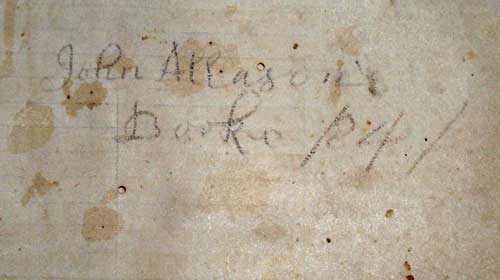 John Allason's
Booke 1741